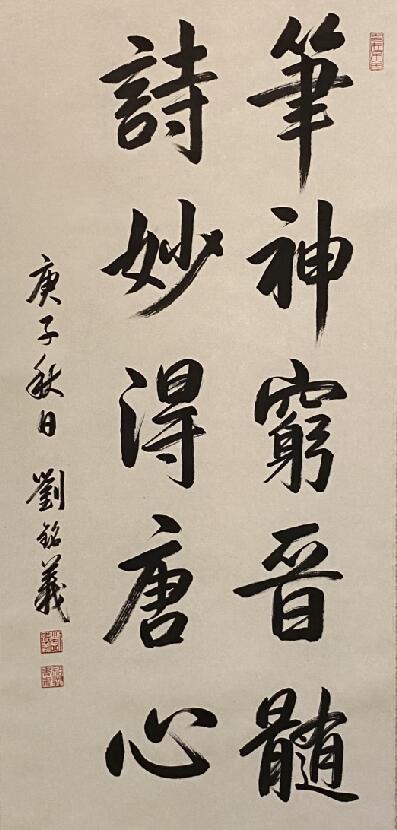 筆神窮晉髓
詩妙得唐心
庚子秋日 劉銘義